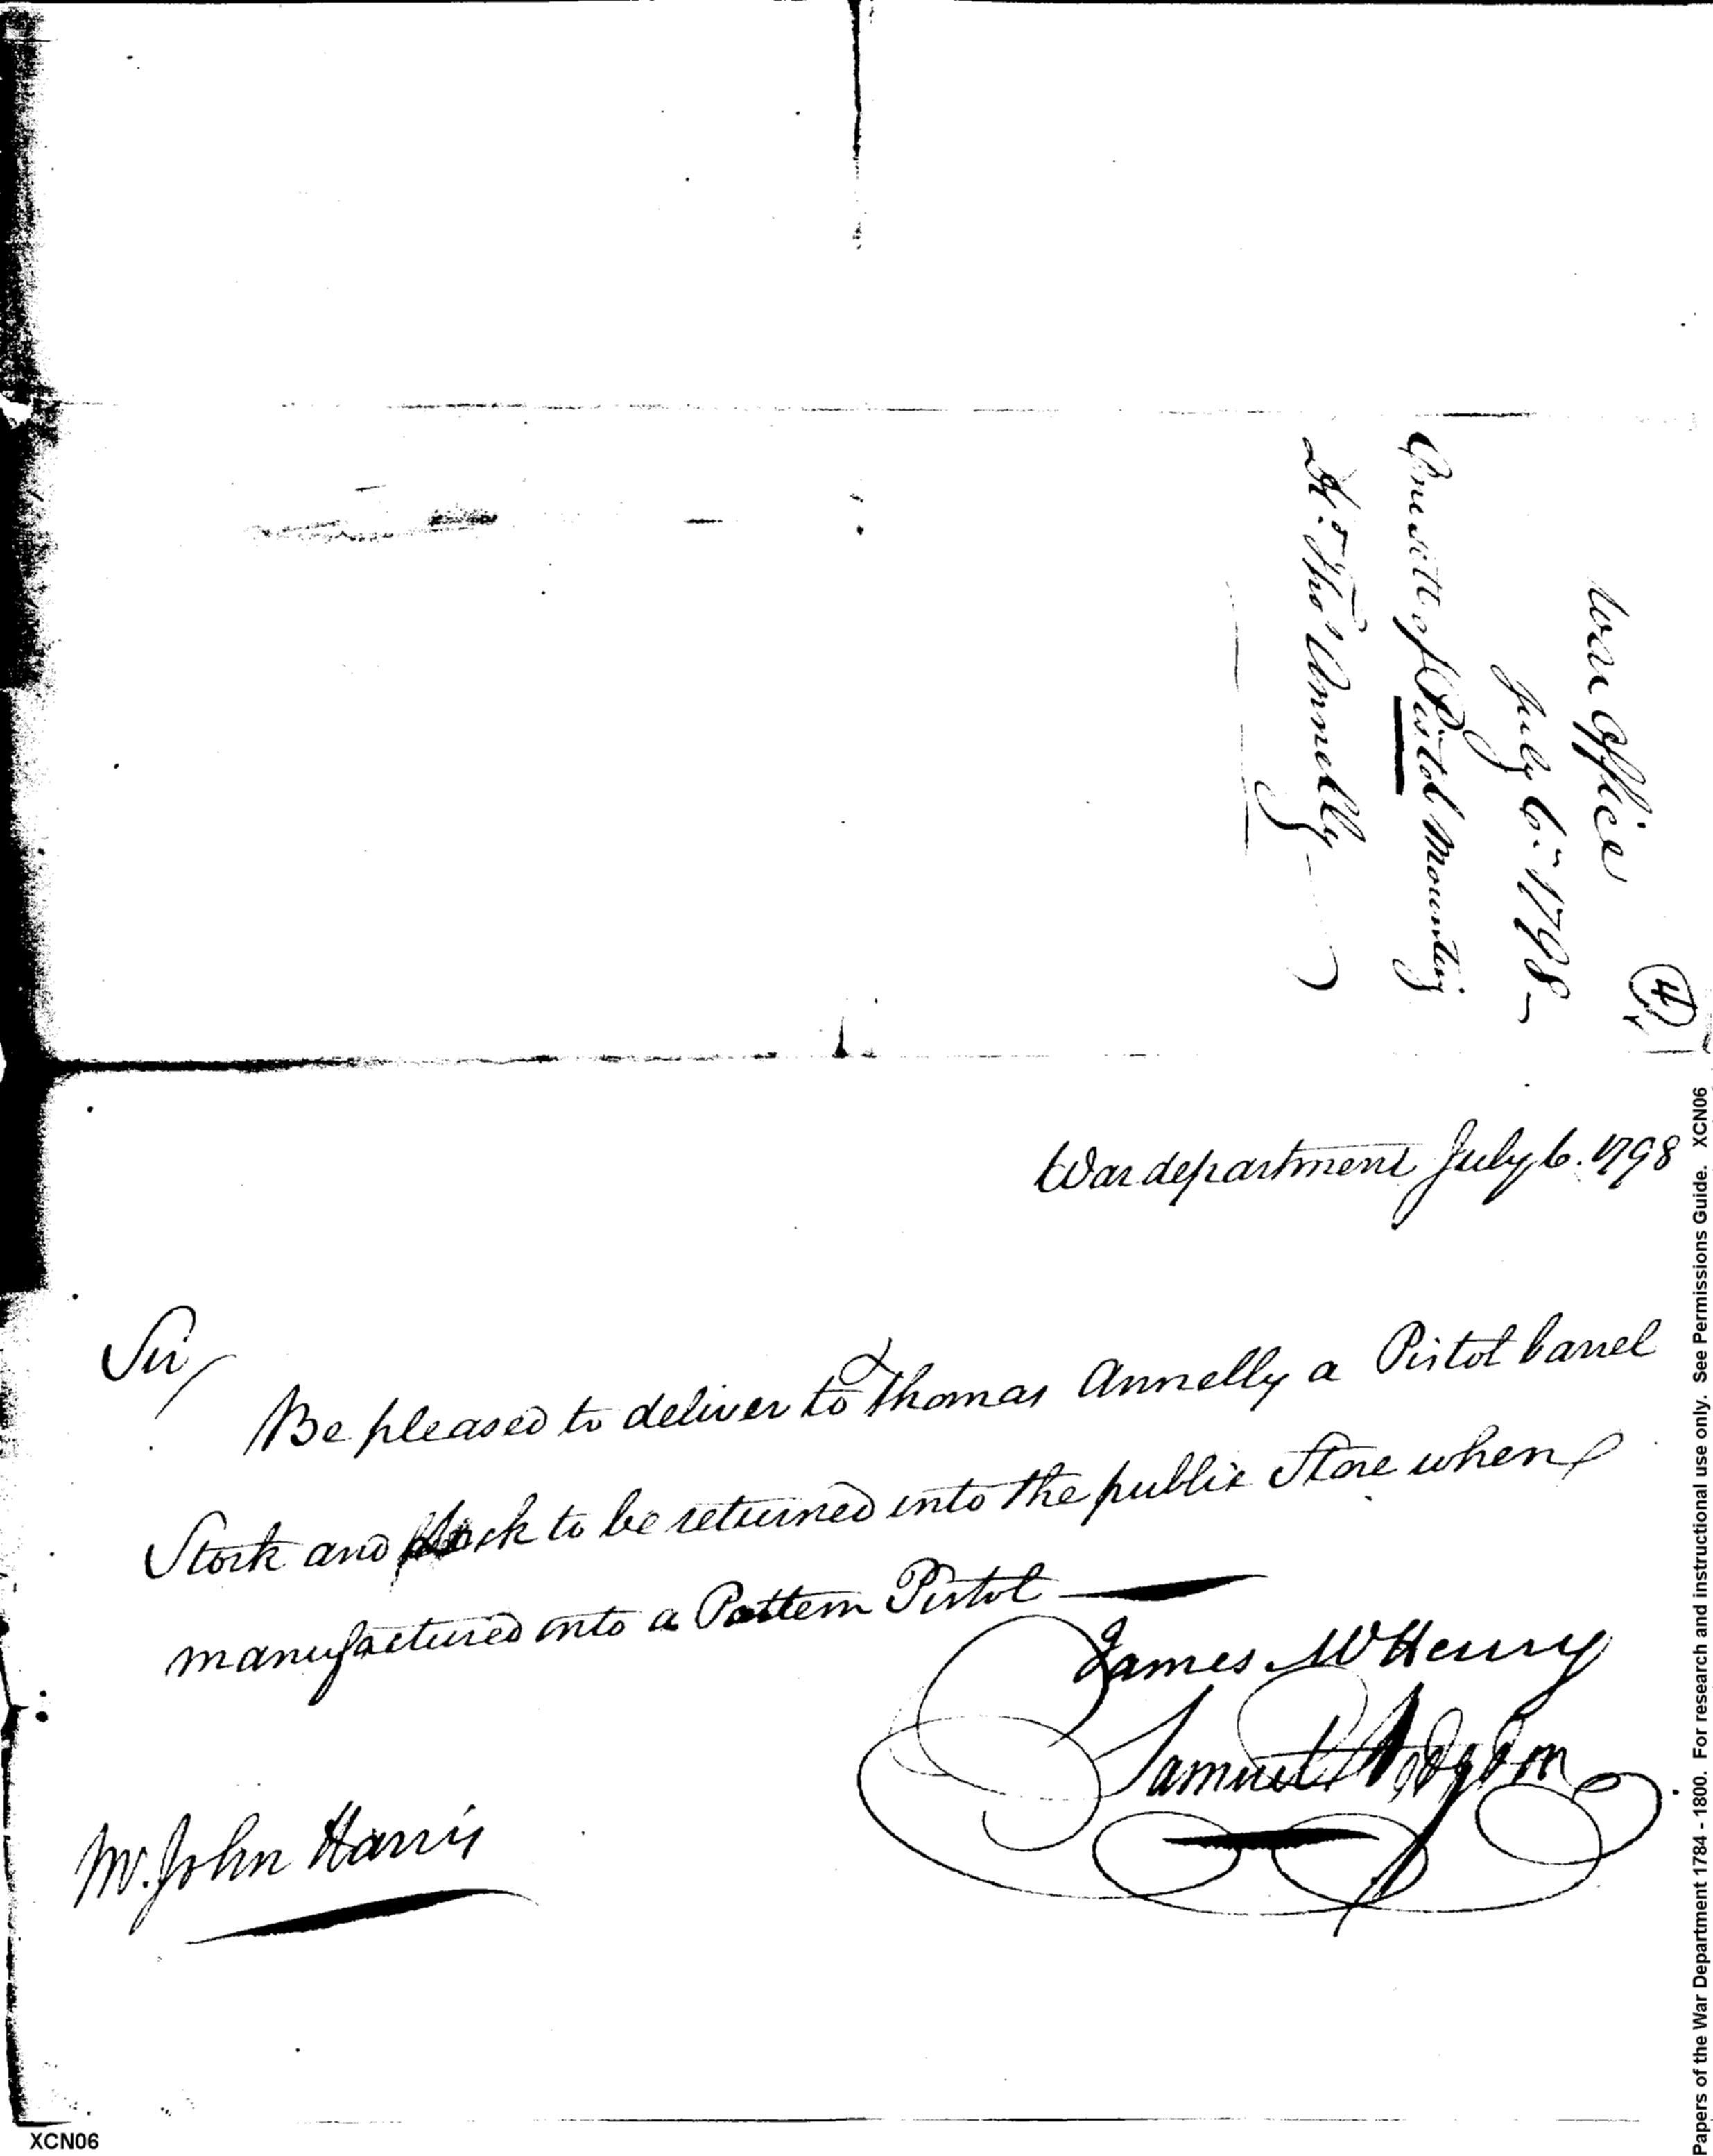 War Office
July 6th 1798 —
One sett of Pistol Mounting
Thos Annelly
4
War department July 6. 1798
Sir,
Be pleased to deliver to Thomas Annelly a Pistol barrel
Stock and Lock to be returned into the public Store when
manufactured into a Pattern Pistol —
James McHenry
Samuel Hodgdon
Mr. John Harris
XCN06
Papers of the War Department 1784 - 1800. For research and instructional use only. See Permissions Guide. XCN06